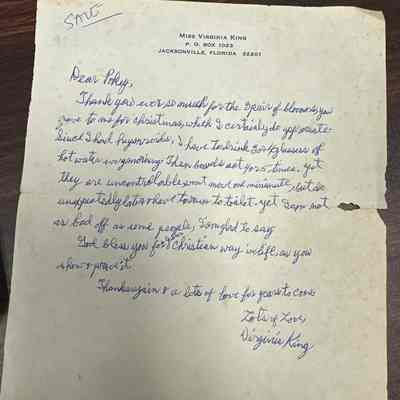 MISS VIRGINIA KING
P. O. BOX 1023
JACKSONVILLE, FLORIDA 32201
Dear
Thank you ever so much for the 3 pair of bloomers you
gave to me for Christmas, which I certainly do appreciate.
Since I had, I have to drink 2 or 3 glasses of
hot water every morning. Then bowels act for 5 times, yet
they are uncontrollable, won't move one minute, but do
unexpectedly later when I to run to toilet. yet I am not
as bad off as some people, I ought to say
God bless you for Christian way in life, as you
show & practice it.
Thanks again & a lots of love for years to come
Lots of Love,
Virginia King